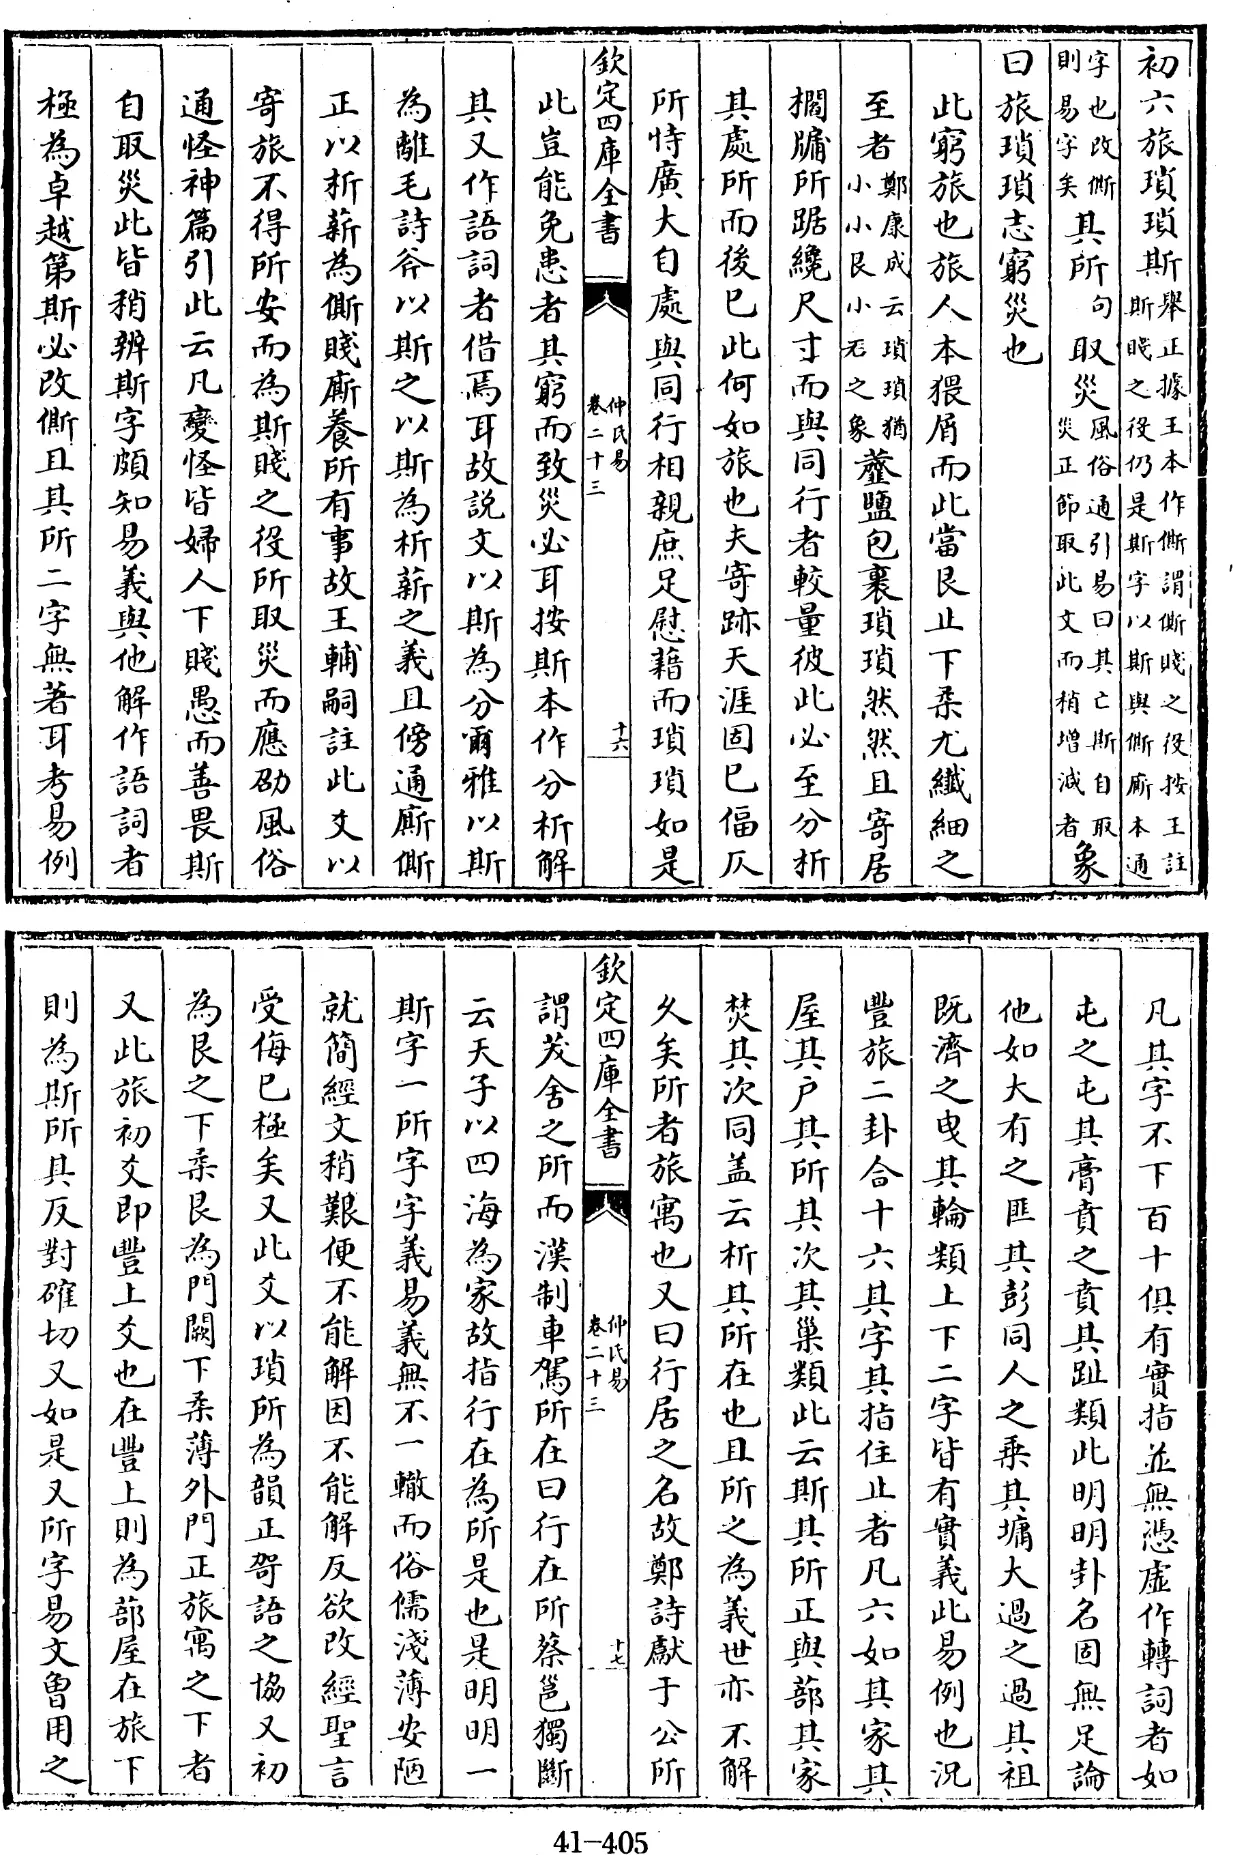 初六旅瑣瑣斯舉正據王本作㒋謂㒋賤之役按王註
斯賤之役仍是斯字以斯與㒋廝本通
字也改㒋
則易字矣其所句取災風俗通引易曰其亡斯自取
災正節取此文而稍增減者象
曰旅瑣瑣志窮災也
此窮旅也旅人本猥屑而此當艮止下柔尤纖細之
至者鄭康成云瑣瑣猶
小小艮小石之象虀鹽包裹瑣瑣然然且寄居
擱牖所踞纔尺寸而與同行者較量彼此必至分析
其處所而後已此何如旅也夫寄跡天涯固已偪仄
所恃廣大自處與同行相親庶足慰藉而瑣瑣如是
欽定四庫全書
仲氏易
卷二十三
十六
此豈能免患者其窮而致災必耳按斯本作分析解
其又作語詞者借焉耳故説文以斯為分爾雅以斯
為離毛詩斧以斯之以斯為析薪之義且傍通廝㒋
正以析薪為㒋賤廝養所有事故王輔嗣註此爻以
寄旅不得所安而為斯賤之役所取災而應劭風俗
通怪神篇引此云凡變怪皆婦人下賤愚而善畏斯
自取災此皆稍辨斯字頗知易義與他解作語詞者
極為卓越第斯必改㒋且其所二字無著耳考易例
凡其字不下百十俱有實指並無憑虛作轉詞者如
屯之屯其膏賁之賁其趾類此明明卦名固無足論
他如大有之匪其彭同人之乘其墉大過之過其祖
既濟之曳其輪類上下二字皆有實義此易例也況
豐旅二卦合十六其字其指住止者凡六如其家其
屋其户其所其次其巢類此云斯其所正與蔀其家
焚其次同盖云析其所在也且所之為義世亦不解
久矣所者旅寓也又曰行居之名故鄭詩獻于公所
欽定四庫全書
仲氏易
卷二十三
十七
謂茇舍之所而漢制車駕所在曰行在所蔡邕獨斷
云天子以四海為家故指行在為所是也是明明一
斯字一所字字義易義無不一轍而俗儒淺薄安陋
就簡經文稍艱便不能解因不能解反欲改經聖言
受侮已極矣又此爻以瑣所為韻正哿語之協又初
為艮之下柔艮為門闕下柔薄外門正旅寓之下者
又此旅初爻即豐上爻也在豐上則為蔀屋在旅下
則為斯所其反對確切又如是又所字易文曾用之
41-405